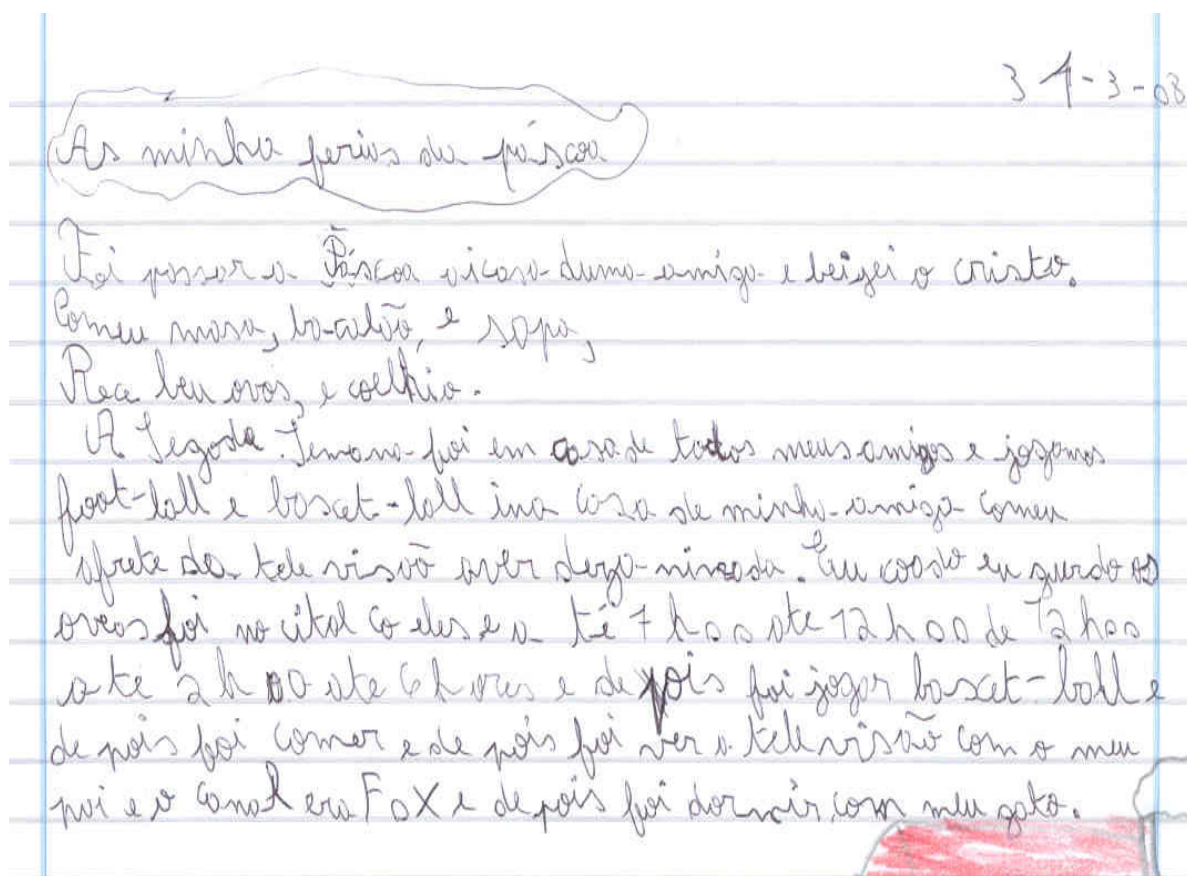 31-3-08
As minha ferias da páscoa
Foi passar a Páscoa a casa duma amiga e beigei o cristo.
Comeu masa, bacalão, e sopa,
Rece beu ovos, e coelhio.
A Segoda Semana foi em casa de todos meus amigos e jogamos
foot-ball e bascet-ball ina casa de minha amiga comeu
afrete da tele visão a ver
. Eu coodo eu gurdo os
foi no
co eles e a té 7 hoo ate 12 hoo de 12 hoo
a té 2 h 00 ate 6 h ores e depois foi jogar bascet-ball e
de pois foi comer e de pois foi ver a televisão com o meu
pai e o canal era FoX e depois foi dormir com meu gato.